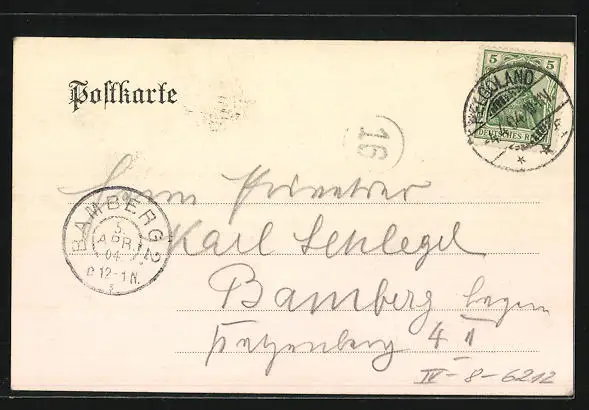 Postkarte
5 5
DEUTSCHES REICH
HELGOLAND
16
Herrn Privatier
Karl Schlegel
Bamberg Bayern
4 II
BAMBERG 2
5.
APR.
04
12-1N.
IV-8-6212